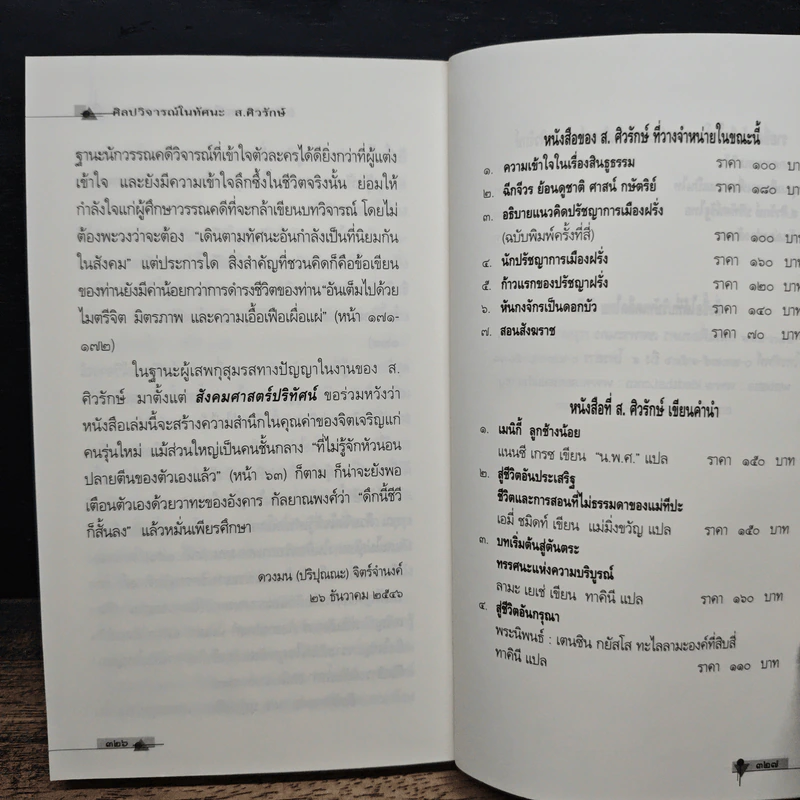 ศิลปวิจารณ์ในทัศนะ ส.ศิวรักษ์
ฐานะนักวรรณคดีวิจารณ์ที่เข้าใจตัวละครได้ดียิ่งกว่าที่ผู้แต่ง
เข้าใจ และยังมีความเข้าใจลึกซึ้งในชีวิตจริงนั้น ย่อมให้
กำลังใจแก่ผู้ศึกษาวรรณคดีที่จะกล้าเขียนบทวิจารณ์ โดยไม่
ต้องพะวงว่าจะต้อง “เดินตามทัศนะอันกำลังเป็นที่นิยมกัน
ในสังคม” แต่ประการใด สิ่งสำคัญที่ชวนคิดก็คือข้อเขียน
ของท่านยังมีค่าน้อยกว่าการดำรงชีวิตของท่าน“อันเต็มไปด้วย
ไมตรีจิต มิตรภาพ และความเอื้อเฟื้อเผื่อแผ่” (หน้า ๑๗๑-
๑๗๒)
ในฐานะผู้เสพกุสุมรสทางปัญญาในงานของ ส.
ศิวรักษ์ มาตั้งแต่ สังคมศาสตร์ปริทัศน์ ขอร่วมหวังว่า
หนังสือเล่มนี้จะสร้างความสำนึกในคุณค่าของจิตเจริญแก่
คนรุ่นใหม่ แม้ส่วนใหญ่เป็นคนชั้นกลาง “ที่ไม่รู้จักหัวนอน
ปลายตีนของตัวเองแล้ว” (หน้า ๖๓) ก็ตาม ก็น่าจะยังพอ
เตือนตัวเองด้วยวาทะของอังคาร กัลยาณพงศ์ว่า “ดึกนี้ชีวี
ก็สั้นลง” แล้วหมั่นเพียรศึกษา
ดวงมน (ปริปุณณะ) จิตร์จำนงค์
๒๖ ธันวาคม ๒๕๔๖
๓๒๖
หนังสือของ ส. ศิวรักษ์ ที่วางจำหน่ายในขณะนี้
๑. ความเข้าใจในเรื่องสินธูธรรม ราคา ๑๐๐ บาท
๒. ฉีกจีวร ย้อนดูชาติ ศาสน์ กษัตริย์ ราคา ๑๘๐ บาท
๓. อธิบายแนวคิดปรัชญาการเมืองฝรั่ง
(ฉบับพิมพ์ครั้งที่สี่) ราคา ๑๐๐ บาท
๔. นักปรัชญาการเมืองฝรั่ง ราคา ๑๖๐ บาท
๕. ก้าวแรกของปรัชญาฝรั่ง ราคา ๑๒๐ บาท
๖. หันกงจักรเป็นดอกบัว ราคา ๑๔๐ บาท
๗. สอนสังฆราช ราคา ๗๐ บาท
หนังสือที่ ส. ศิวรักษ์ เขียนคำนำ
๑. เมนิกี้ ลูกช้างน้อย
แนนซี เกรซ เขียน “น.พ.ศ.” แปล ราคา ๑๕๐ บาท
๒. สู่ชีวิตอันประเสริฐ
ชีวิตและการสอนที่ไม่ธรรมดาของแม่ทีปะ
เอมี่ ชมิดท์ เขียน แม่มิ่งขวัญ แปล ราคา ๑๕๐ บาท
๓. บทเริ่มต้นสู่ตันตระ
ทรรศนะแห่งความบริบูรณ์
ลามะ เยเช่ เขียน ทาคินี แปล ราคา ๑๖๐ บาท
๔. สู่ชีวิตอันกรุณา
พระนิพนธ์ : เตนซิน กยัสโส ทะไลลามะองค์ที่สิบสี่
ทาคินี แปล ราคา ๑๑๐ บาท
๓๒๗